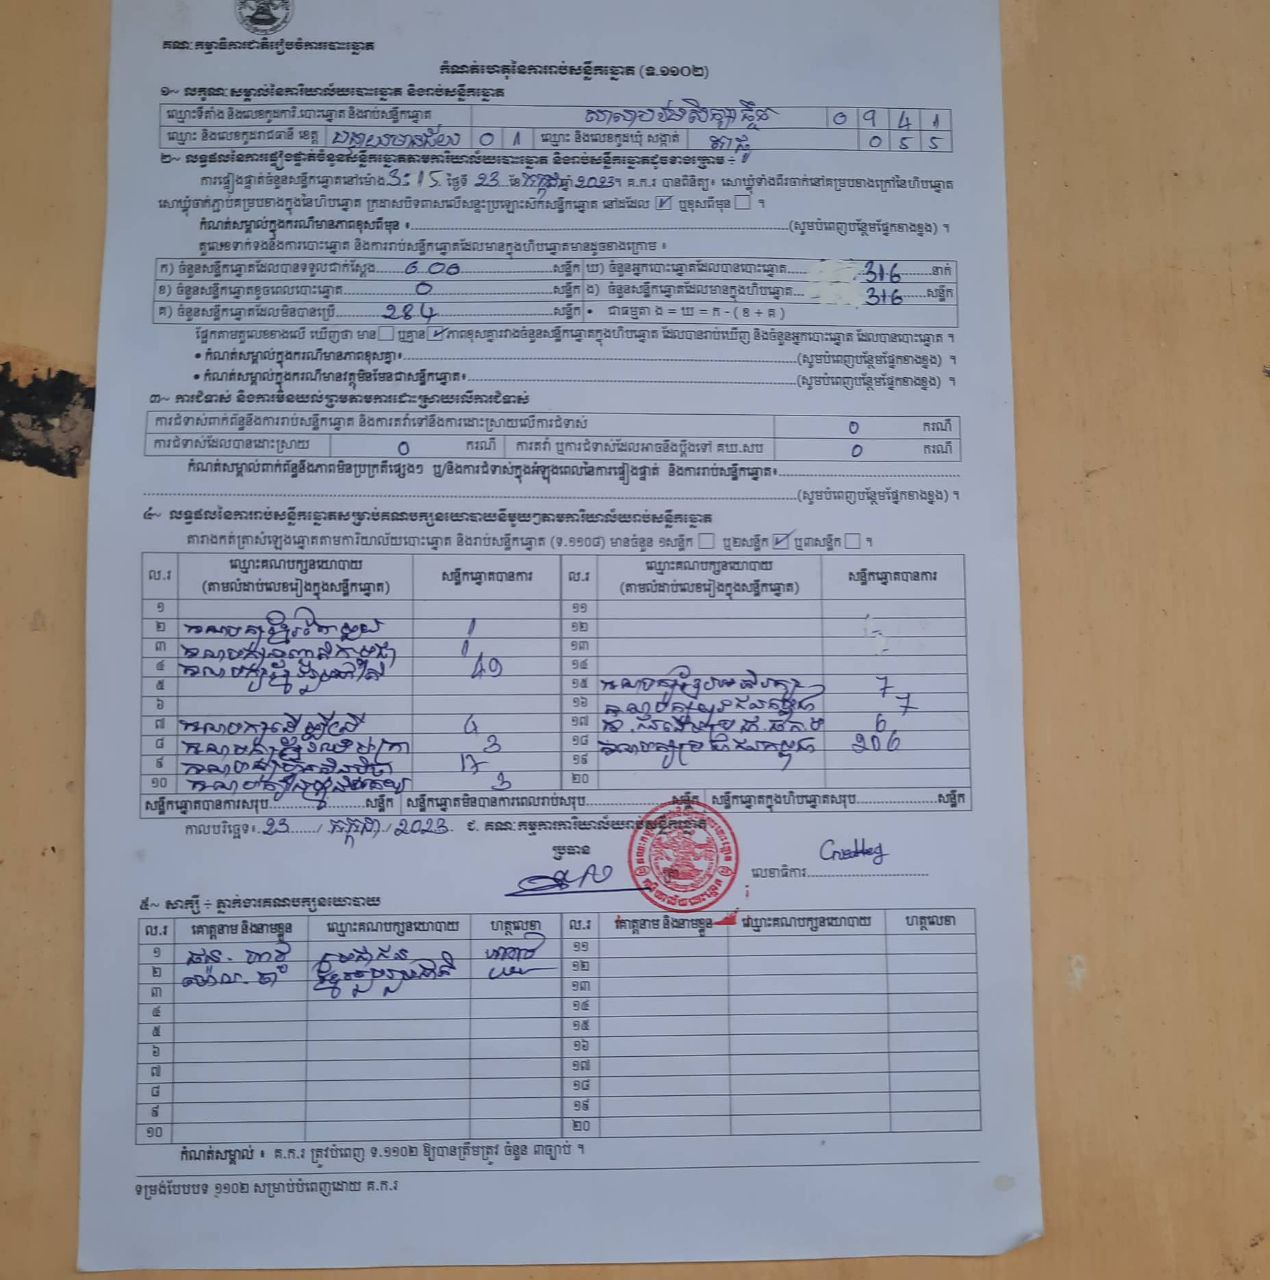 គណៈកម្មាធិការជាតិរៀបចំការបោះឆ្នោត
កំណត់ហេតុនៃការរាប់សន្លឹកឆ្នោត (ទ.១១០២)
១~ លក្ខណៈសម្គាល់នៃការិយាល័យបោះឆ្នោត និងរាប់សន្លឹកឆ្នោត
ឈ្មោះទីតាំង និងលេខកូដការិ.បោះឆ្នោត និងរាប់សន្លឹកឆ្នោត 0 9 4 1
ឈ្មោះ និងលេខកូដរាជធានី ខេត្ត បន្ទាយមានជ័យ 0 1 ឈ្មោះ និងលេខកូដឃុំ សង្កាត់ 0 5 5
២~ លទ្ធផលនៃការផ្ទៀងផ្ទាត់ចំនួនសន្លឹកឆ្នោតតាមការិយាល័យបោះឆ្នោត និងរាប់សន្លឹកឆ្នោតដូចខាងក្រោម ÷
ការផ្ទៀងផ្ទាត់ចំនួនសន្លឹកឆ្នោតនៅម៉ោង 3:15 ថ្ងៃទី 23 ខែ កក្កដា ឆ្នាំ 2023។ គ.ក.រ បានពិនិត្យ៖ សោឃ្លុំទាំងពីរចាក់នៅគម្របខាងក្រៅនៃហិបឆ្នោត
សោឃ្លុំចាក់ភ្ជាប់គម្របខាងក្នុងនៃហិបឆ្នោត ក្រដាសបិទពាសលើសន្ទះប្រឡោះស៊កសន្លឹកឆ្នោត នៅដដែល ☑ ឬខុសពីមុន ☐ ។
កំណត់សម្គាល់ក្នុងករណីមានភាពខុសពីមុន ៖ (សូមបំពេញបន្ថែមផ្នែកខាងខ្នង) ។
តួលេខទាក់ទងនឹងការបោះឆ្នោត និងការរាប់សន្លឹកឆ្នោតដែលមានក្នុងហិបឆ្នោតមានដូចខាងក្រោម ៖
ក) ចំនួនសន្លឹកឆ្នោតដែលបានទទួលជាក់ស្តែង 600 សន្លឹក ឃ) ចំនួនអ្នកបោះឆ្នោតដែលបានបោះឆ្នោត 316 នាក់
ខ) ចំនួនសន្លឹកឆ្នោតខូចពេលបោះឆ្នោត 0 សន្លឹក ង) ចំនួនសន្លឹកឆ្នោតដែលមានក្នុងហិបឆ្នោត 316 សន្លឹក
គ) ចំនួនសន្លឹកឆ្នោតដែលមិនបានប្រើ 284 សន្លឹក • ជាធម្មតា ង = ឃ = ក - ( ខ + គ )
ផ្អែកតាមតួលេខខាងលើ ឃើញថា មាន ☐ ឬគ្មាន ☑ ភាពខុសគ្នារវាងចំនួនសន្លឹកឆ្នោតក្នុងហិបឆ្នោត ដែលបានរាប់ឃើញ និងចំនួនអ្នកបោះឆ្នោត ដែលបានបោះឆ្នោត ។
• កំណត់សម្គាល់ក្នុងករណីមានភាពខុសគ្នា៖ (សូមបំពេញបន្ថែមផ្នែកខាងខ្នង) ។
• កំណត់សម្គាល់ក្នុងករណីមានវត្ថុមិនមែនជាសន្លឹកឆ្នោត៖ (សូមបំពេញបន្ថែមផ្នែកខាងខ្នង) ។
៣~ ការជំទាស់ និងការមិនយល់ព្រមតាមការដោះស្រាយលើការជំទាស់
ការជំទាស់ពាក់ព័ន្ធនឹងការរាប់សន្លឹកឆ្នោត និងការតវ៉ាទៅនឹងការដោះស្រាយលើការជំទាស់ 0 ករណី
ការជំទាស់ដែលបានដោះស្រាយ 0 ករណី ការតវ៉ា ឬការជំទាស់ដែលអាចនឹងប្តឹងទៅ គឃ.សប 0 ករណី
កំណត់សម្គាល់ពាក់ព័ន្ធនឹងភាពមិនប្រក្រតីផ្សេងៗ ឬ/និងការជំទាស់ក្នុងអំឡុងពេលនៃការផ្ទៀងផ្ទាត់ និងការរាប់សន្លឹកឆ្នោត៖
(សូមបំពេញបន្ថែមផ្នែកខាងខ្នង) ។
៤~ លទ្ធផលនៃការរាប់សន្លឹកឆ្នោតសម្រាប់គណបក្សនយោបាយនីមួយៗតាមការិយាល័យរាប់សន្លឹកឆ្នោត
តារាងកត់ត្រាសំឡេងឆ្នោតតាមការិយាល័យបោះឆ្នោត និងរាប់សន្លឹកឆ្នោត (ទ.១១០៨) មានចំនួន ១សន្លឹក ☐ ឬ២សន្លឹក ☑ ឬ៣សន្លឹក ☐ ។
ល.រ ឈ្មោះគណបក្សនយោបាយ (តាមលំដាប់លេខរៀងក្នុងសន្លឹកឆ្នោត) សន្លឹកឆ្នោតបានការ ល.រ ឈ្មោះគណបក្សនយោបាយ (តាមលំដាប់លេខរៀងក្នុងសន្លឹកឆ្នោត) សន្លឹកឆ្នោតបានការ
១ ១១
២ គណបក្ស 1 ១២
៣ គណបក្ស 1 ១៣
៤ គណបក្ស 49 ១៤
៥ ១៥ គណបក្ស 7
៦ ១៦ គណបក្ស 7
៧ គណបក្ស 4 ១៧ 6
៨ គណបក្ស 3 ១៨ គណបក្សប្រជាជនកម្ពុជា 206
៩ គណបក្ស 17 ១៩
១០ គណបក្ស 3 ២០
សន្លឹកឆ្នោតបានការសរុប សន្លឹក សន្លឹកឆ្នោតមិនបានការពេលរាប់សរុប សន្លឹក សន្លឹកឆ្នោតក្នុងហិបឆ្នោតសរុប សន្លឹក
កាលបរិច្ឆេទ៖ 23 / កក្កដា / 2023. ជ. គណៈកម្មការការិយាល័យរាប់សន្លឹកឆ្នោត
ប្រធាន
លេខាធិការ
៥~ សាក្សី ÷ ភ្នាក់ងារគណបក្សនយោបាយ
ល.រ គោត្តនាម និងនាមខ្លួន ឈ្មោះគណបក្សនយោបាយ ហត្ថលេខា ល.រ គោត្តនាម និងនាមខ្លួន ឈ្មោះគណបក្សនយោបាយ ហត្ថលេខា
១ ១១
២ ១២
៣ ១៣
៤ ១៤
៥ ១៥
៦ ១៦
៧ ១៧
៨ ១៨
៩ ១៩
១០ ២០
កំណត់សម្គាល់ ៖ គ.ក.រ ត្រូវបំពេញ ទ.១១០២ ឱ្យបានត្រឹមត្រូវ ចំនួន ៣ច្បាប់ ។
ទម្រង់បែបបទ ១១០២ សម្រាប់បំពេញដោយ គ.ក.រ